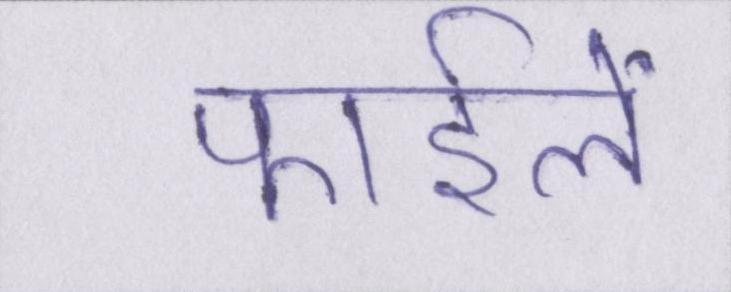 फाईलें